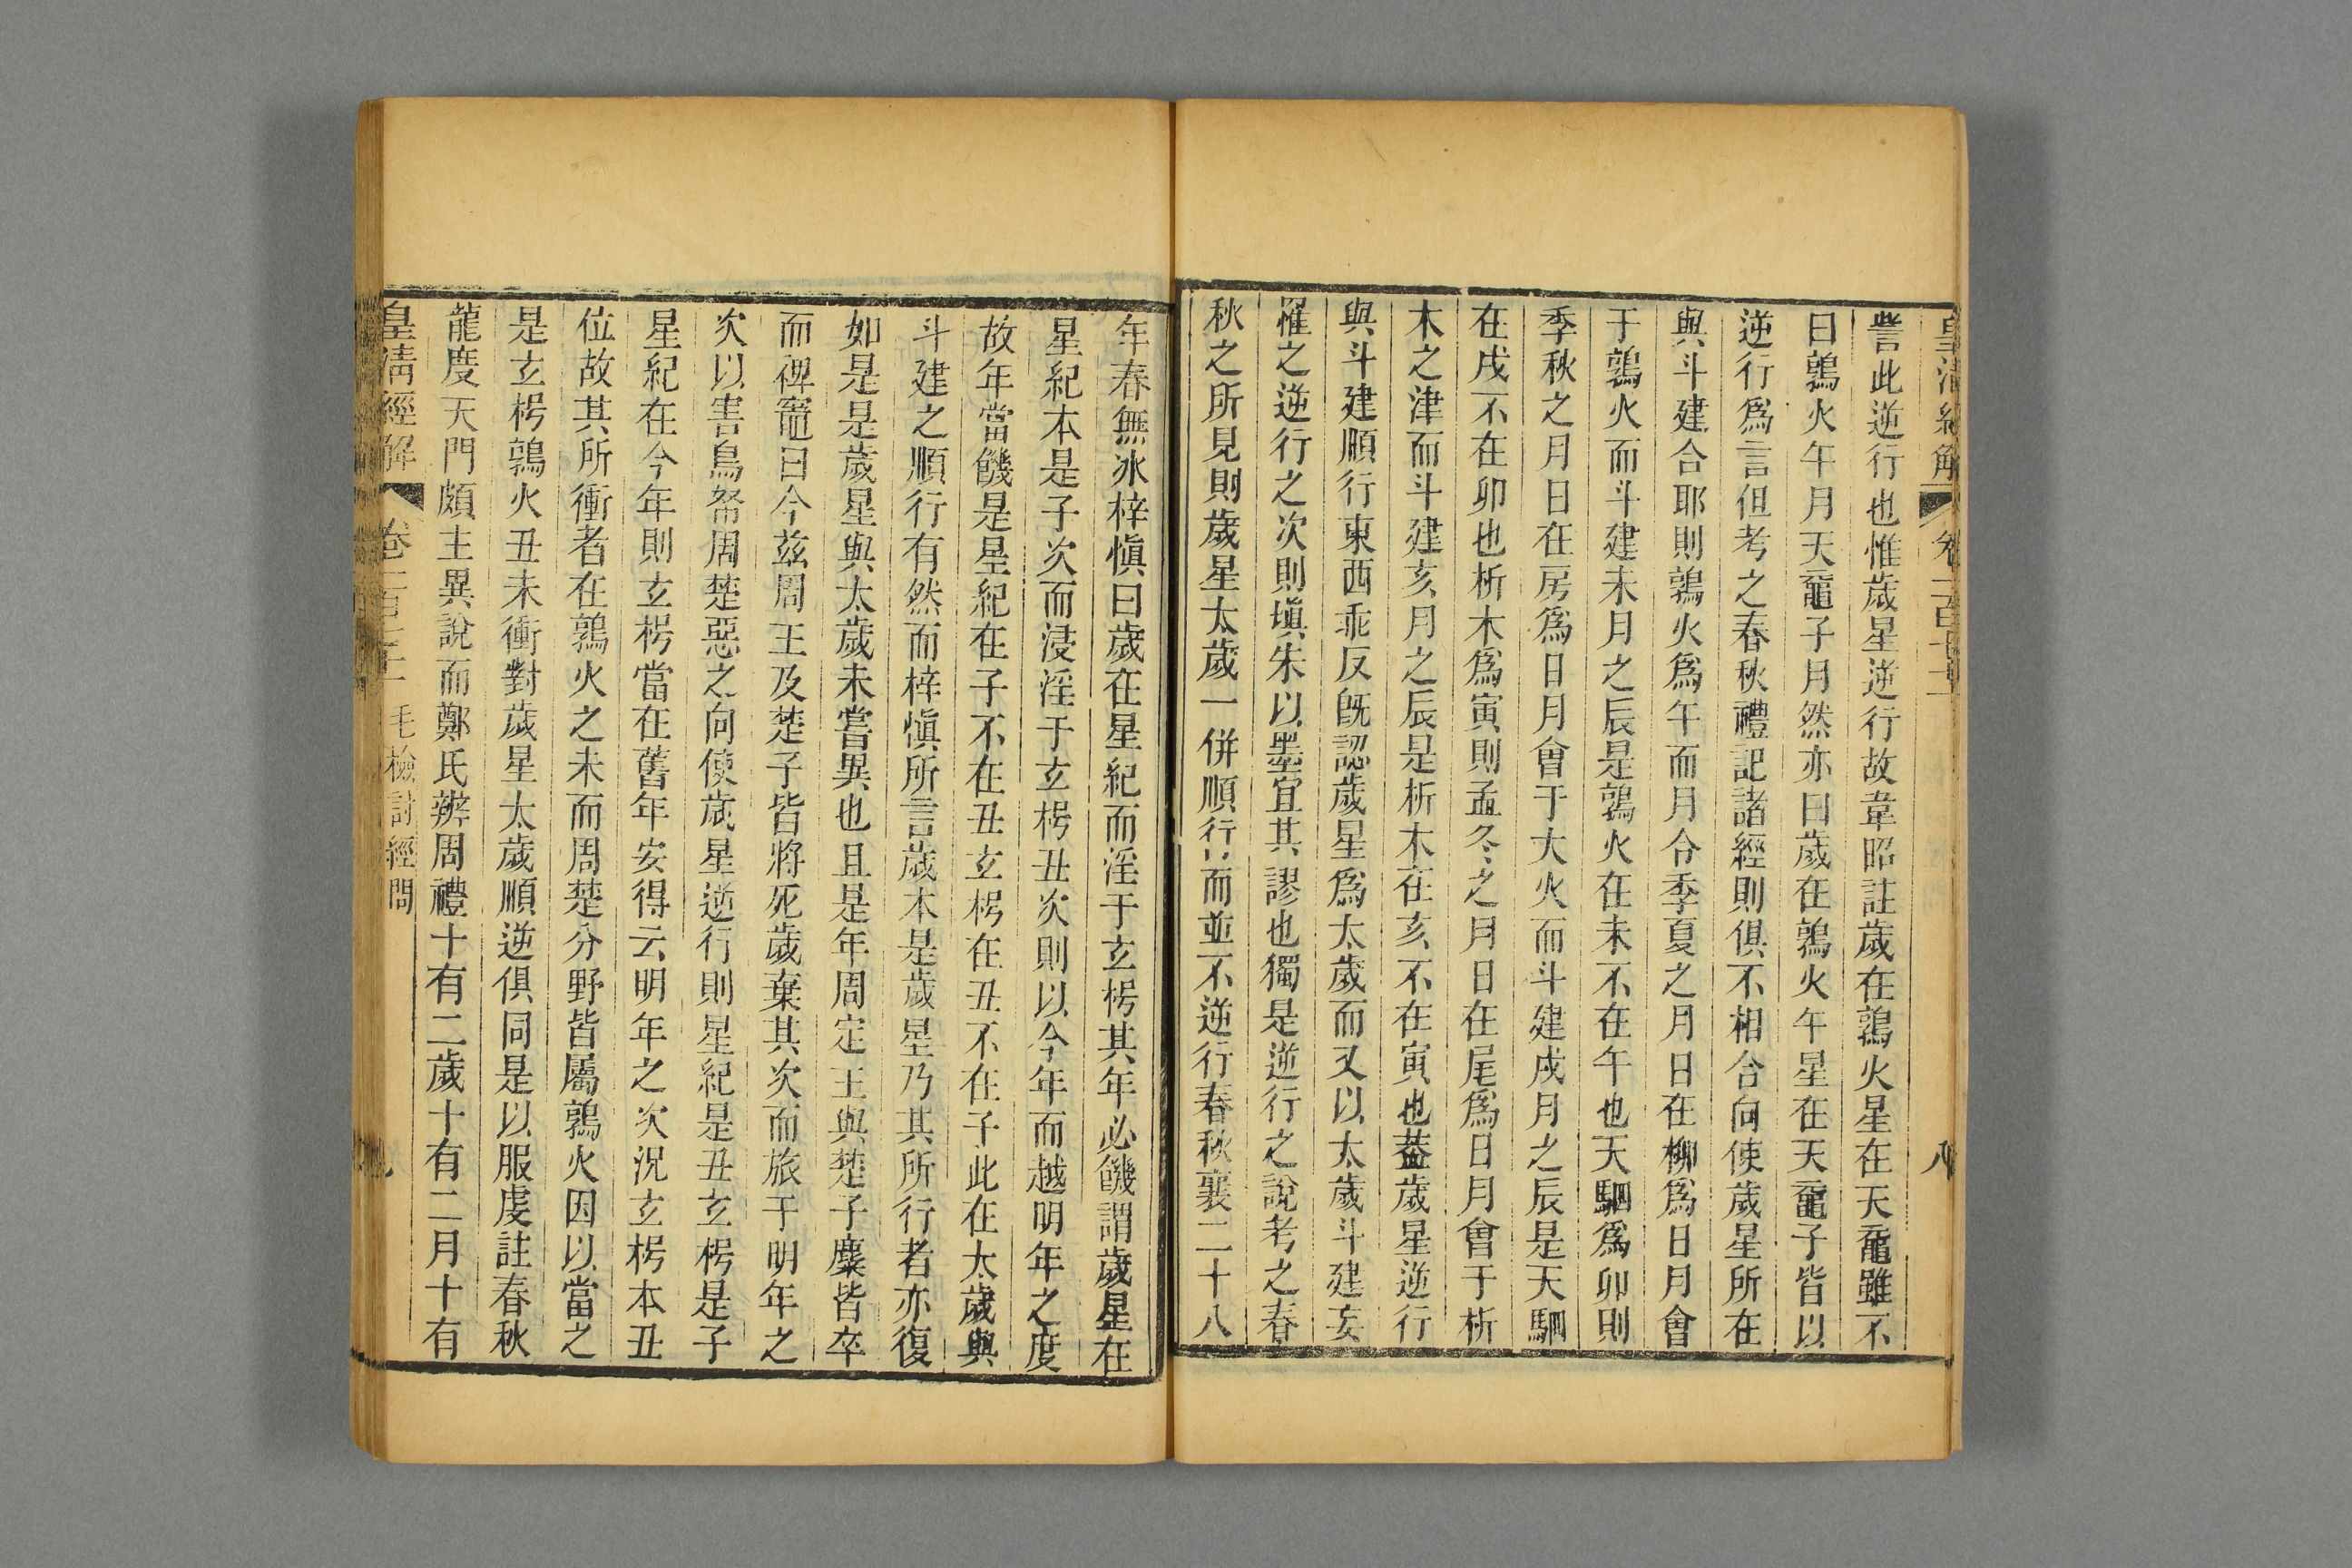 皇清經解 卷一百七十 八
訾此逆行也惟歲星逆行故韋昭註歲在鶉火星在天黿雖不
曰鶉火午月天黿子月然亦曰歲在鶉火午星在天黿子皆以
逆行爲言但考之春秋禮記諸經則俱不相合向使歲星所在
與斗建合耶則鶉火爲午而月令季夏之月日在柳爲日月會
于鶉火而斗建未月之辰是鶉火在未不在午也天駟爲卯則
季秋之月日在房爲日月會于大火而斗建戌月之辰是天駟
在戌不在卯也析木爲寅則孟冬之月日在尾爲日月會于析
木之津而斗建亥月之辰是析木在亥不在寅也葢歲星逆行
與斗建順行東西乖反旣認歲星爲太歲而又以太歲斗建妄
推之逆行之次則塡朱以墨宜其謬也獨是逆行之說考之春
秋之所見則歲星太歲一併順行而並不逆行春秋襄二十八
年春無冰梓愼曰歲在星紀而淫于玄枵其年必饑謂歲星在
星紀本是子次而浸淫于玄枵丑次則以今年而越明年之度
故年當饑是星紀在子不在丑玄枵在丑不在子此在太歲與
斗建之順行有然而梓愼所言歲本是歲星乃其所行者亦復
如是是歲星與太歲未嘗異也且是年周定王與楚子麇皆卒
而裨竈曰今兹周王及楚子皆將死歲棄其次而旅于明年之
次以害鳥帑周楚惡之向使歲星逆行則星紀是丑玄枵是子
星紀在今年則玄枵當在舊年安得云明年之次況玄枵本丑
位故其所衝者在鶉火之未而周楚分野皆屬鶉火因以當之
是玄枵鶉火丑未衝對歲星太歲順逆俱同是以服虔註春秋
龍度天門頗主異說而鄭氏辨周禮十有二歲十有二月十有
皇清經解 卷一百七十 毛檢討經問 九